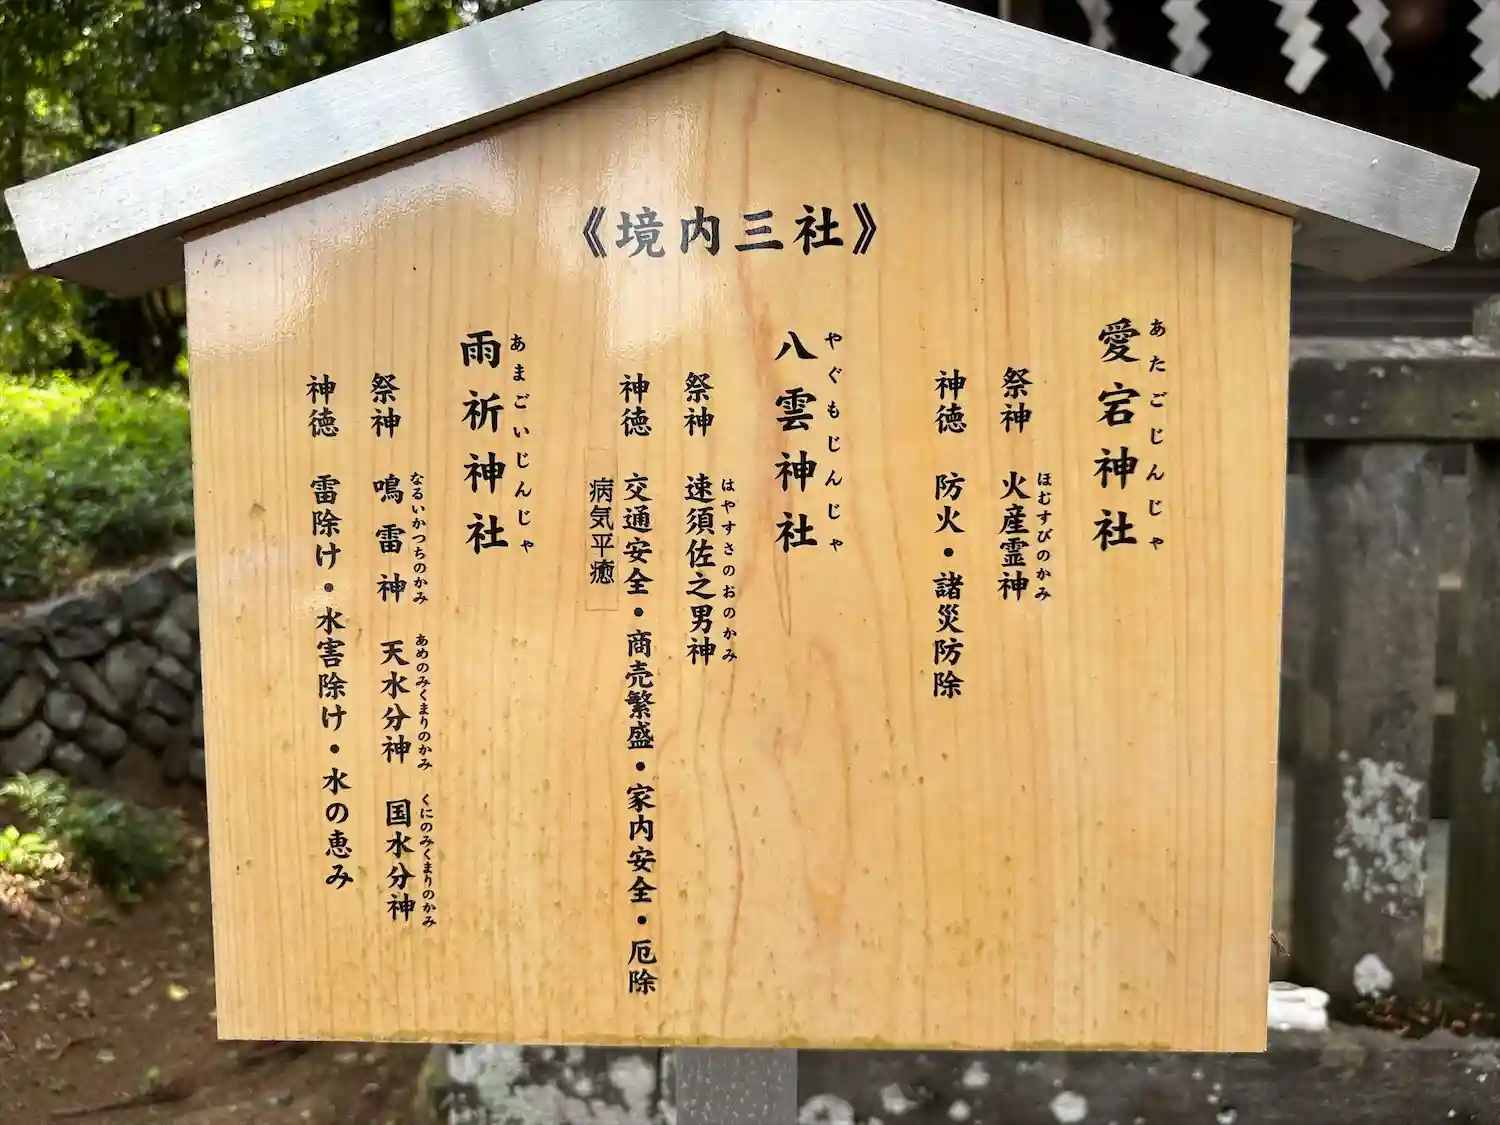 《境内三社》
愛宕神社
あたごじんじゃ
祭神 火産霊神
ほむすびのかみ
神徳 防火・諸災防除
八雲神社
やぐもじんじゃ
祭神 速須佐之男神
はやすさのおのかみ
神徳 交通安全・商売繁盛・家内安全・厄除
病気平癒
雨祈神社
あまごいじんじゃ
祭神 鳴雷神 天水分神 国水分神
なるいかつちのかみ あめのみくまりのかみ くにのみくまりのかみ
神徳 雷除け・水害除け・水の恵み